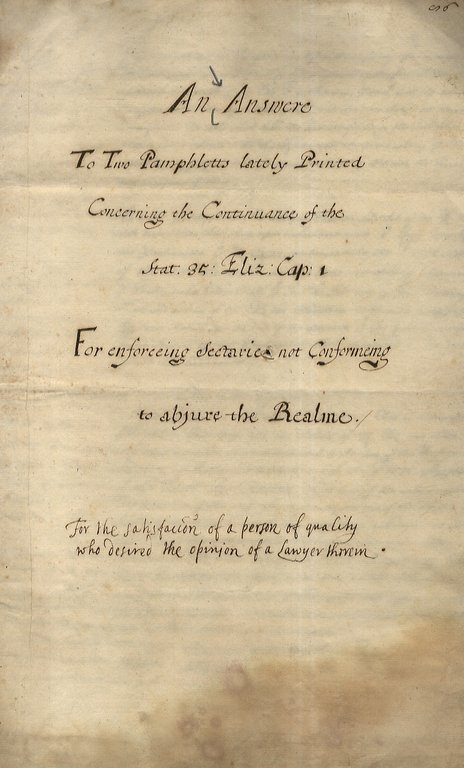 An Answere
To Two Pamphletts lately Printed
Concerning the Continuance of the
Stat: 35: Eliz: Cap: 1
For enforceing Sectaries not Conformeing
to abjure the Realme./
For the satisfaccon of a person of quality
who desired the opinion of a Lawyer therein.